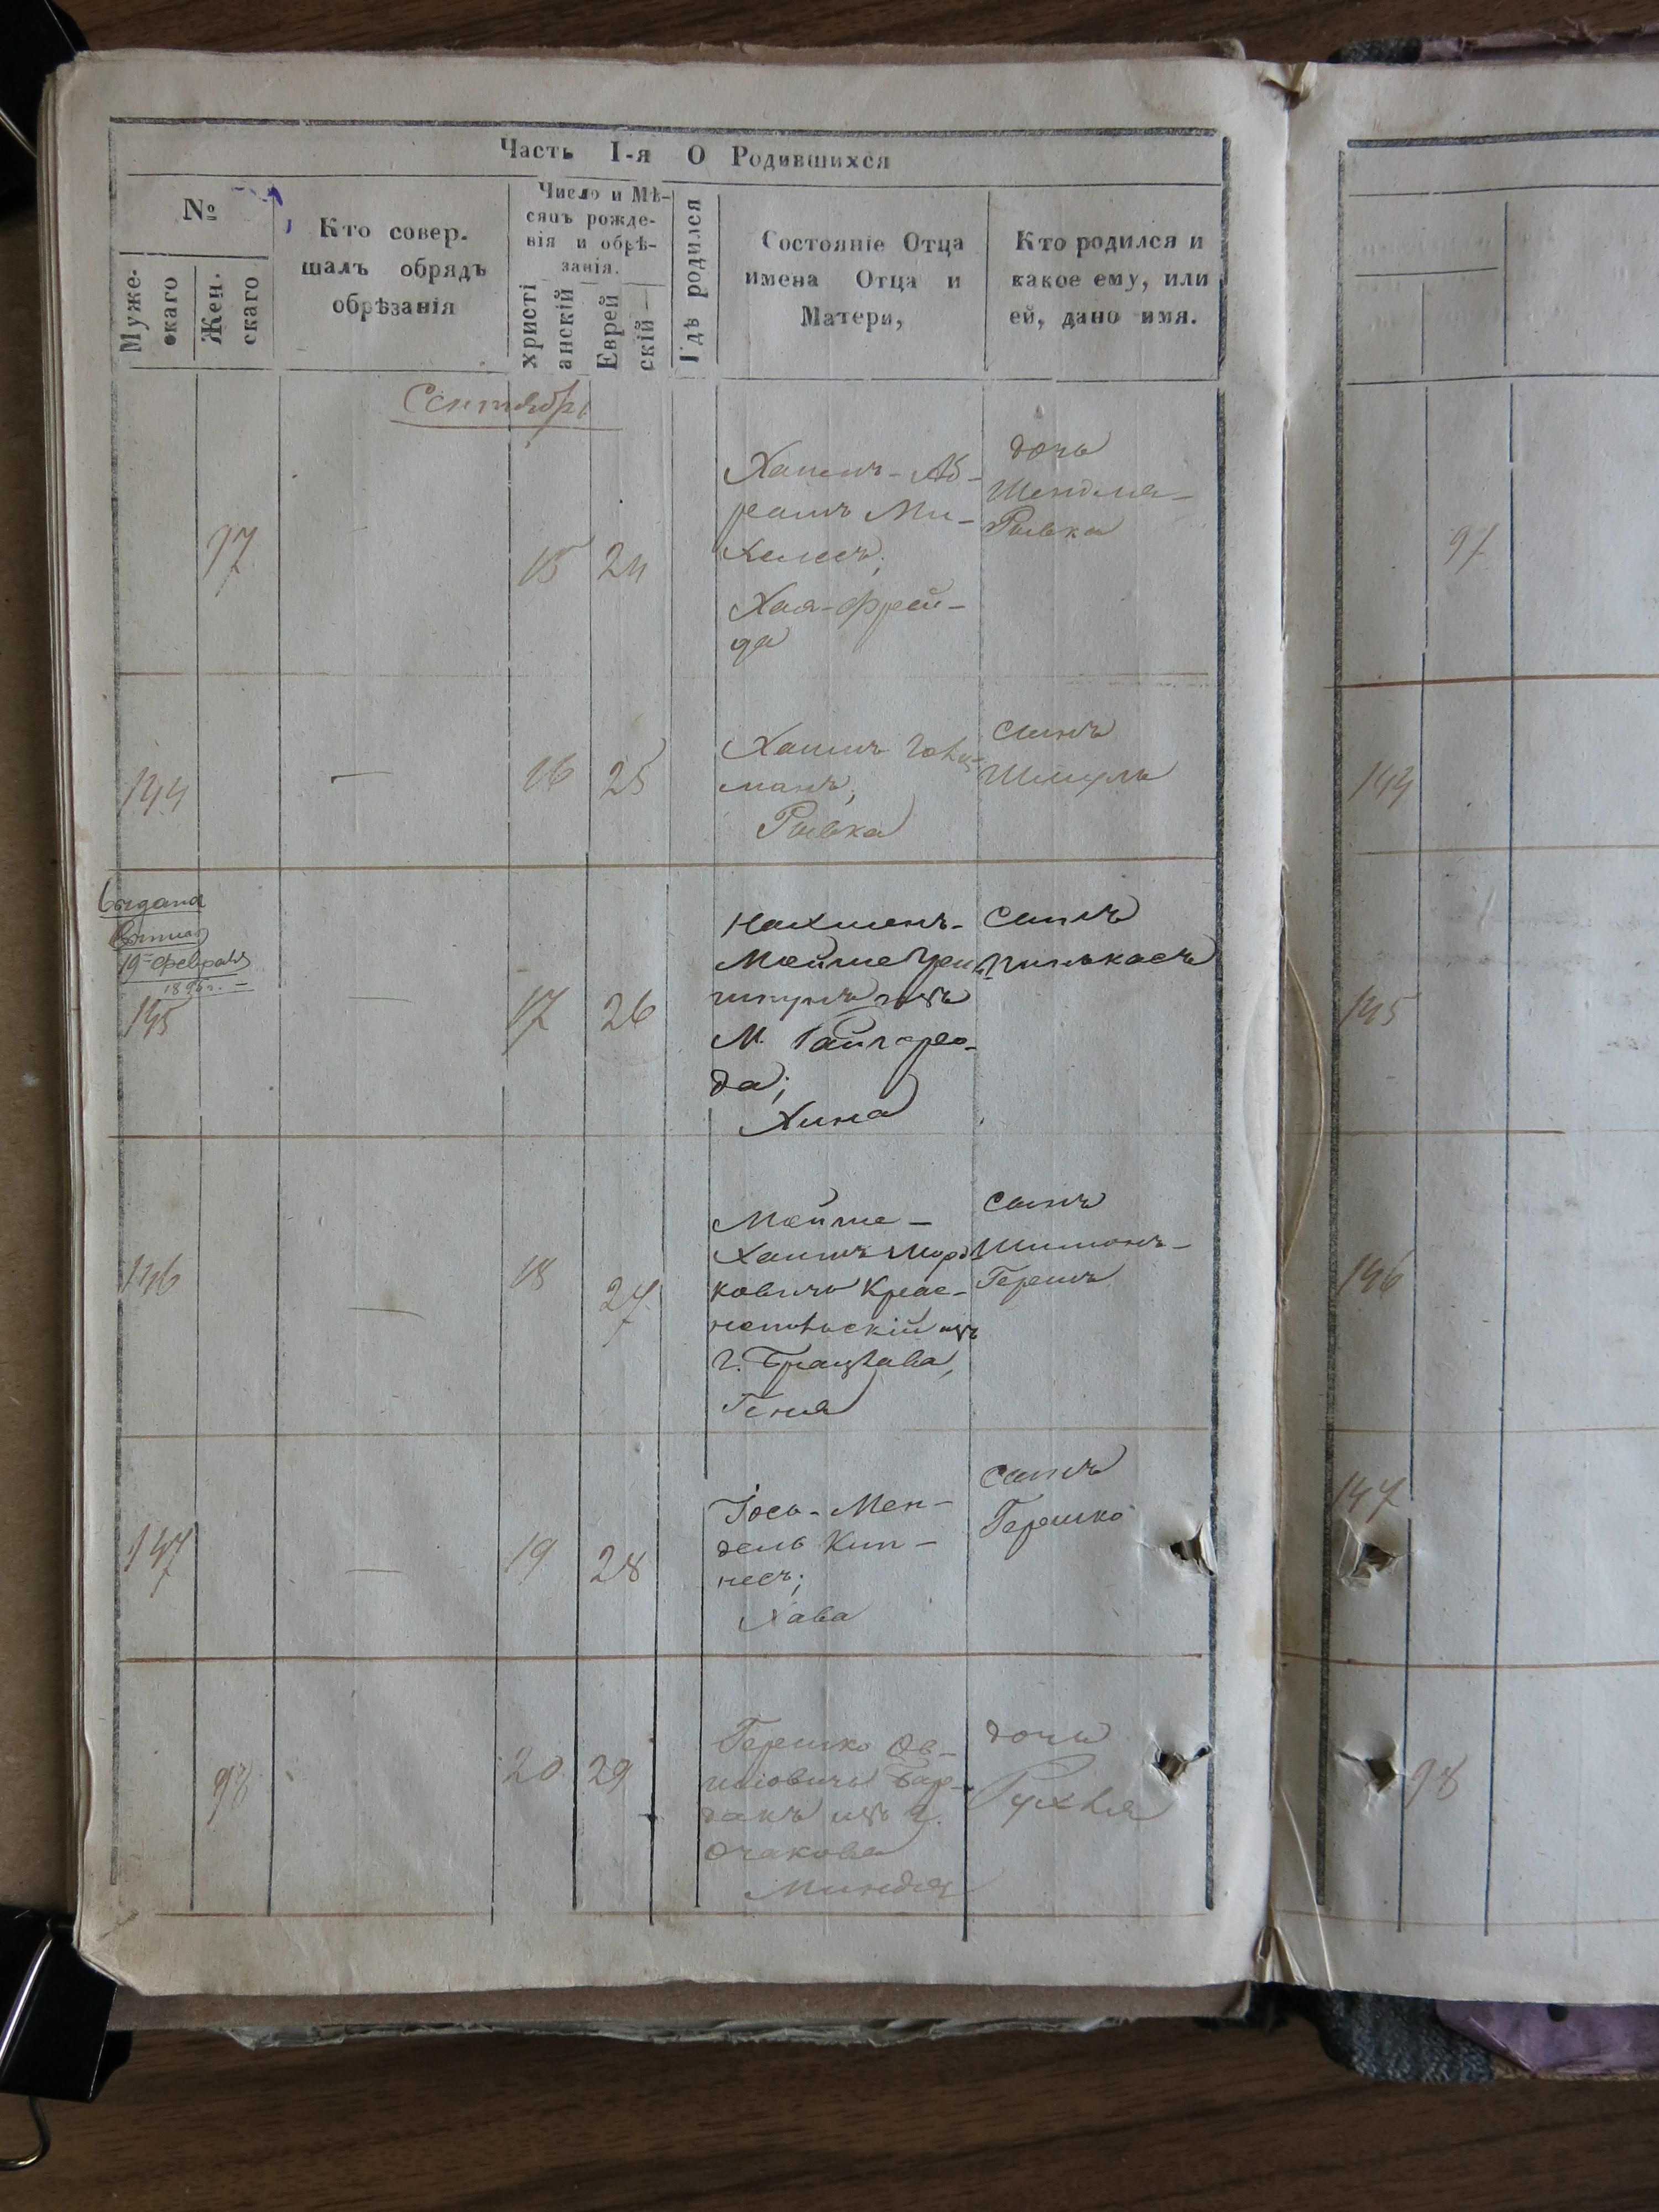 Часть I-я О Родившихся
№
Муже-
скаго
Жен.
скаго
Кто совер.
шалъ обрядъ
обрѣзанія
Число и Мѣ-
сяцъ рожде-
нія и обрѣ-
занія.
христі
анскій
Еврей
скій —
Гдѣ родился
Состояніе Отца
имена Отца и
Матери,
Кто родился и
какое ему, или
ей, дано имя.
Сентябрь
97
—
15
24
Хаимъ-Аб-
рамъ Ми-
хелесъ;
Хая-Фрей-
да
дочь
Шендля-
Рывка
97
144
—
16
25
Хаимъ
манъ;
Рывка
сынъ
Шмуль
144
Выдана
19 Февраля
145
—
17
26
Нахманъ-
Мойше
изъ
М. Райгоро-
да;
Хина
сынъ
Пинькасъ
145
146
—
18
27
Мойше-
Хаимъ Морд
ковичъ Крас-
нопольскій изъ
г. Брацлава,
Геня
сынъ
Шимонъ-
Гершъ
146
147
—
19
28
Іось-Мен-
дель Кип-
несъ;
Хава
сынъ
Гершко
147
98
20
29
Гершко Ов-
шіовичъ Бар-
дакъ изъ г.
Очакова
Миндля
дочь
Рухля
98